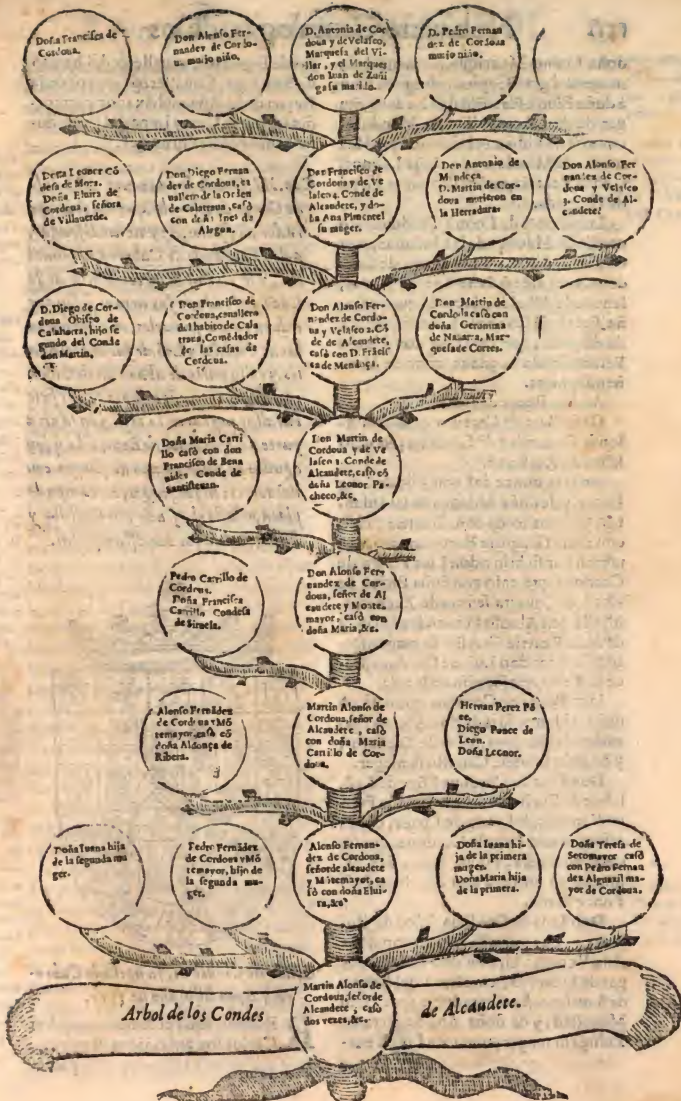 Doña Francisca de
Cordoua.
Don Alonso Fer-
nandez de Cordo-
ua, murio niño.
D. Antonia de Cor
doua y de Velasco,
Marquesa del Vi-
llar, y el Marques
don Iuan de Zuñi
ga su marido.
D. Pedro Fernan
dez de Cordoua
murio niño.
Doña Leonor Cō
desa de Mora.
Doña Eluira de
Cordoua, señora
de Villauerde.
Don Diego Fernan
dez de Cordoua, ca
uallero de la Orden
de Calatraua, casò
con doña Ines de
Alagon.
Don Francisco de
Cordoua y de Ve
lasco 4. Conde de
Alcaudete, y do-
ña Ana Pimentel
su muger.
Don Antonio de
Mendoça
D. Martin de Cor-
doua murieron en
la Herradura.
Don Alonso Fer
nandez de Cor-
doua y Velasco
3. Conde de Al-
caudete.
D. Diego de Cor-
doua Obispo de
Calahorra, hijo se
gundo del Conde
don Martin,
Don Francisco de
Cordoua, cauallero
del habito de Cala
traua, Comēdador
de las casas de
Cordoua.
Don Alonso Fer-
nandez de Cordo-
ua y Velasco 2. Cō
de de Alcaudete,
casò con D. Frācis
ca de Mendoça.
Don Martin de
Cordoua casò con
doña Geronima
de Nauarra, Mar-
quesa de Cortes.
Doña Maria Carri
llo casò con don
Francisco de Bena
uides Conde de
Santisteuan.
Don Martin de
Cordoua y de Ve
lasco 1. Conde de
Alcaudete, casò cō
doña Leonor Pa-
checo, &c.
Pedro Carrillo de
Cordoua.
Doña Francisca
Carrillo Condesa
de Siruela.
Don Alonso Fer-
nandez de Cor-
doua, señor de Al
caudete y Monte-
mayor, casò con
doña Maria, &c.
Alonso Fernādez
de Cordoua y Mō
temayor, casò cō
doña Aldonça de
Ribera.
Martin Alonso de
Cordoua, señor de
Alcaudete, casò
con doña Maria
Carrillo de Cor-
doua.
Hernan Perez Pō
ce.
Diego Ponce de
Leon.
Doña Leonor.
Doña Iuana hija
de la segunda mu
ger.
Pedro Fernādez
de Cordoua y Mō
temayor, hijo de
la segunda mu-
ger.
Alonso Fernan-
dez de Cordoua,
señor de alcaudete
y Mōtemayor, ca
sò con doña Elui-
ra, &c.
Doña Iuana hi-
ja de la primera
muger.
Doña Maria hija
de la primera.
Doña Teresa de
Sotomayor casò
con Pedro Fernan
dez Alguazil ma-
yor de Cordoua.
Arbol de los Condes
Martin Alonso de
Cordoua, señor de
Alcaudete, casò
dos vezes, &c.
de Alcaudete.